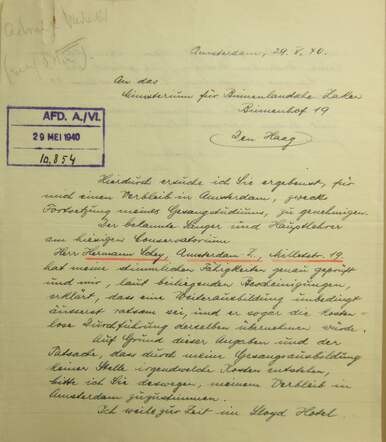 Amsterdam, 29. V. 40.
An das
Ministerium für Binnenlandsche Zaken
Binnenhof 19
Den Haag
AFD. A./VI.
29 MEI 1940
10.854
Hierdurch ersuche ich Sie ergebenst, für
und einen Verbleib in Amsterdam, zwecks
Fortsetzung meines Gesangstudiums, zu genehmigen.
Der bekannte Sänger und Hauptlehrer
am hiesigen Conservatorium
Herr Hermann Schey, Amsterdam Z., Milletstr. 19.
hat meine stimmlichen Fähigkeiten genau geprüft
und mir, laut beiliegenden Bescheinigungen,
erklärt, dass eine Weiterausbildung unbedingt
äusserst ratsam sei, und er sogar die kosten-
lose Durchführung derselben übernehmen würde.
Auf Grund dieser Angaben und der
Tatsache, dass durch meine Gesangsausbildung
keiner Stelle irgendwelche Kosten entstehen,
bitte ich Sie deswegen, meinem Verbleib in
Amsterdam zuzustimmen.
Ich weile zur Zeit im Lloyd Hotel